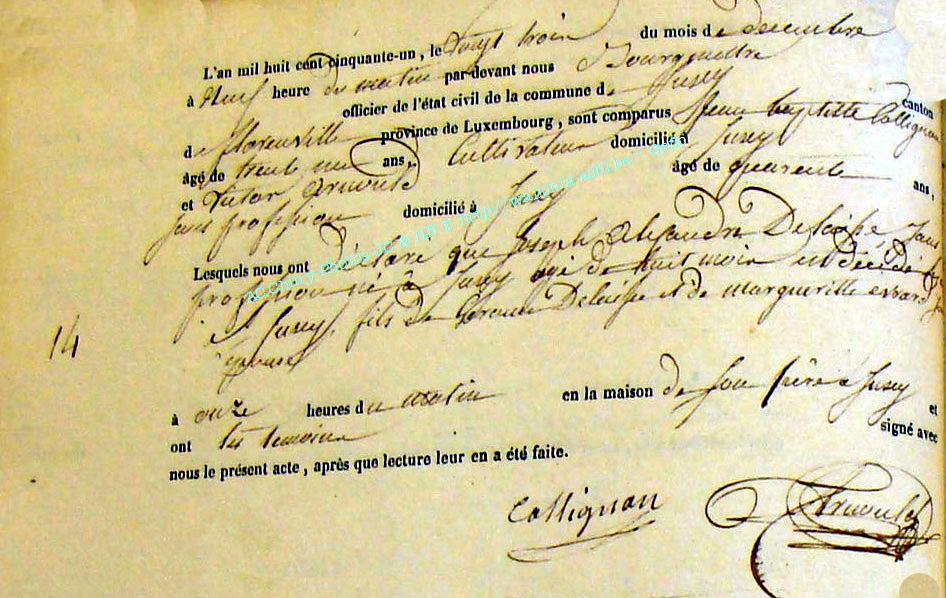 L'an mil huit cent cinquante-un, le vingt trois du mois de décembre
à Neuf heure du matin par devant nous Bourgmestre
officier de l'état civil de la commune de Jusey canton
de florenville province de Luxembourg, sont comparus Jean baptiste Collignon
âgé de trente un ans, Cultivateur domicilié à Jusey
et Victor Arnould âgé de quarente ans,
sans profession domicilié à Jusey
Lesquels nous ont déclaré que Joseph Alexandre sans
profession né à Jusey agé de huit mois est décédé
à Jusey, fils de et de margueritte evrard
époux
à onze heures du matin en la maison de son père à Jusey et
ont les temoins signé avec
nous le présent acte, après que lecture leur en a été faite.
14
Collignon Arnould